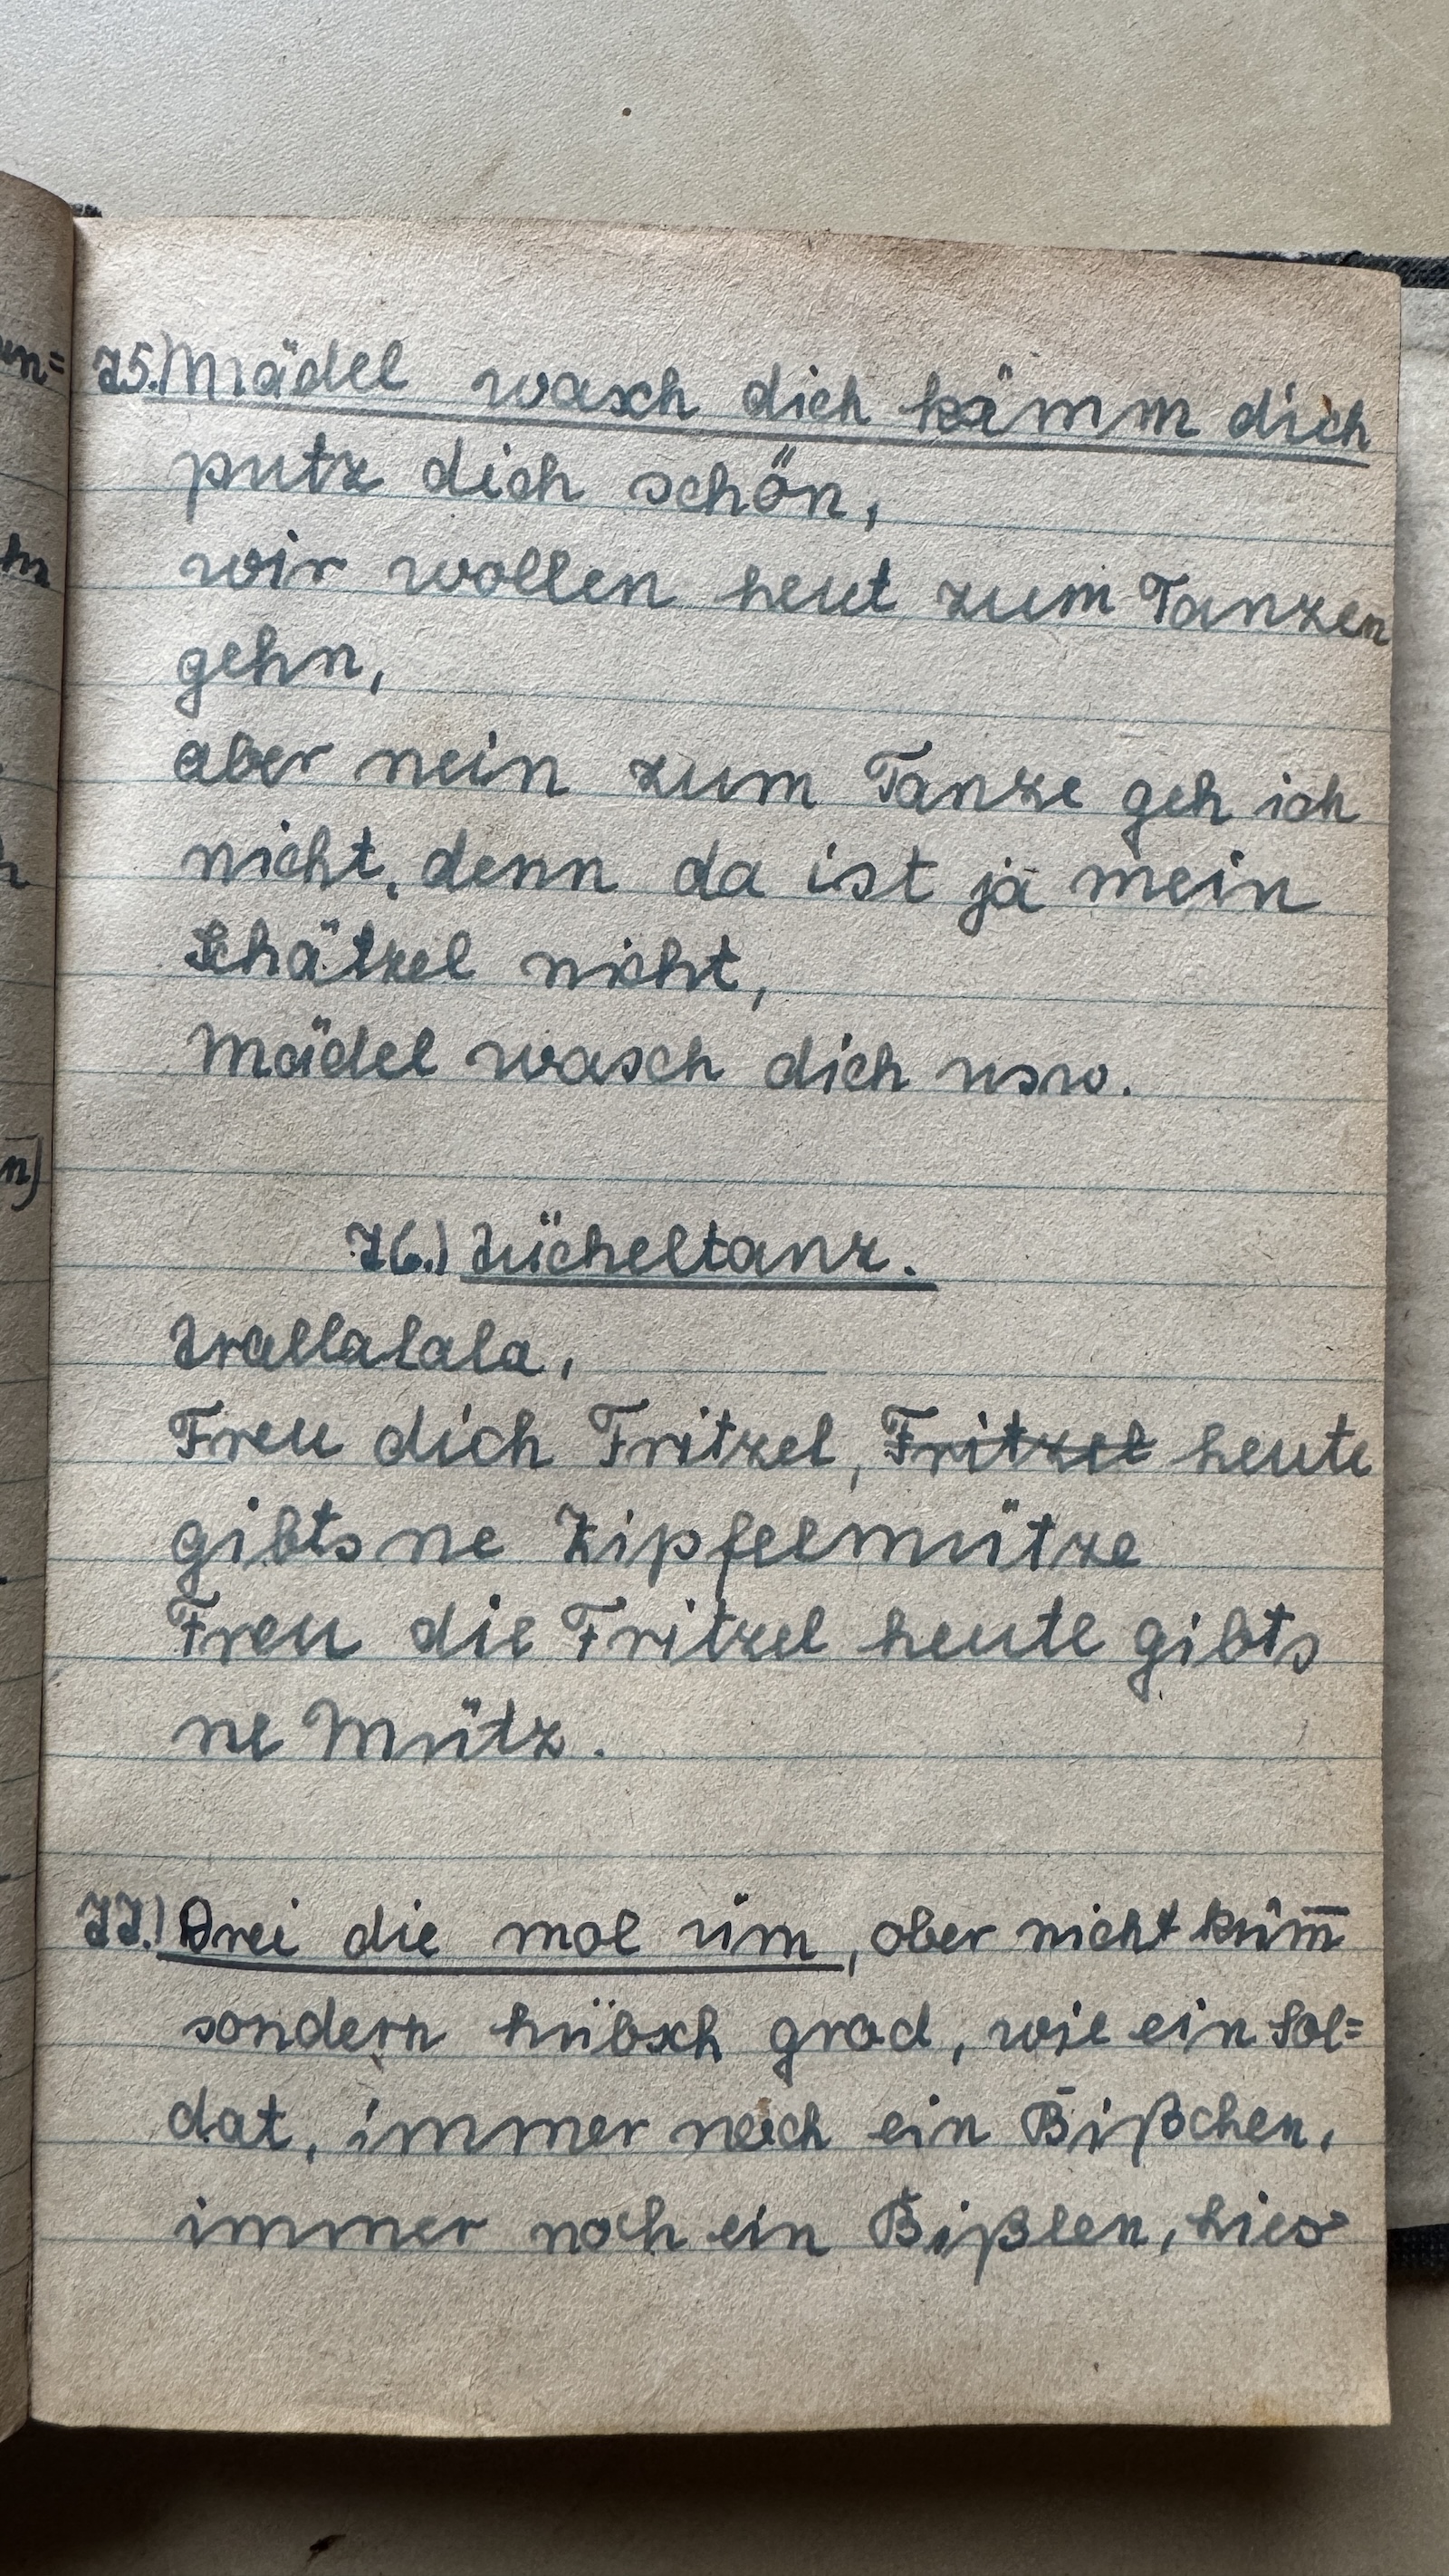 75.) Mädel wasch dich kämm dich
putz dich schön,
wir wollen heut zum Tanzen
gehn,
aber nein zum Tanze geh ich
nicht, denn da ist ja mein
Schätzel nicht,
Mädel wasch dich usw.
76.) Tücheltanz.
Trallalala,
Freu dich Fritzel, Fritzel heute
gibts ne Zipfelmütze
Freu die Fritzel heute gibts
ne Mütz.
77.) Drei die mol üm, ober nicht krüm̅
sondern hübsch grod, wie ein Sol=
dat, immer noch ein Bißchen,
immer noch ein Bißlen, hies